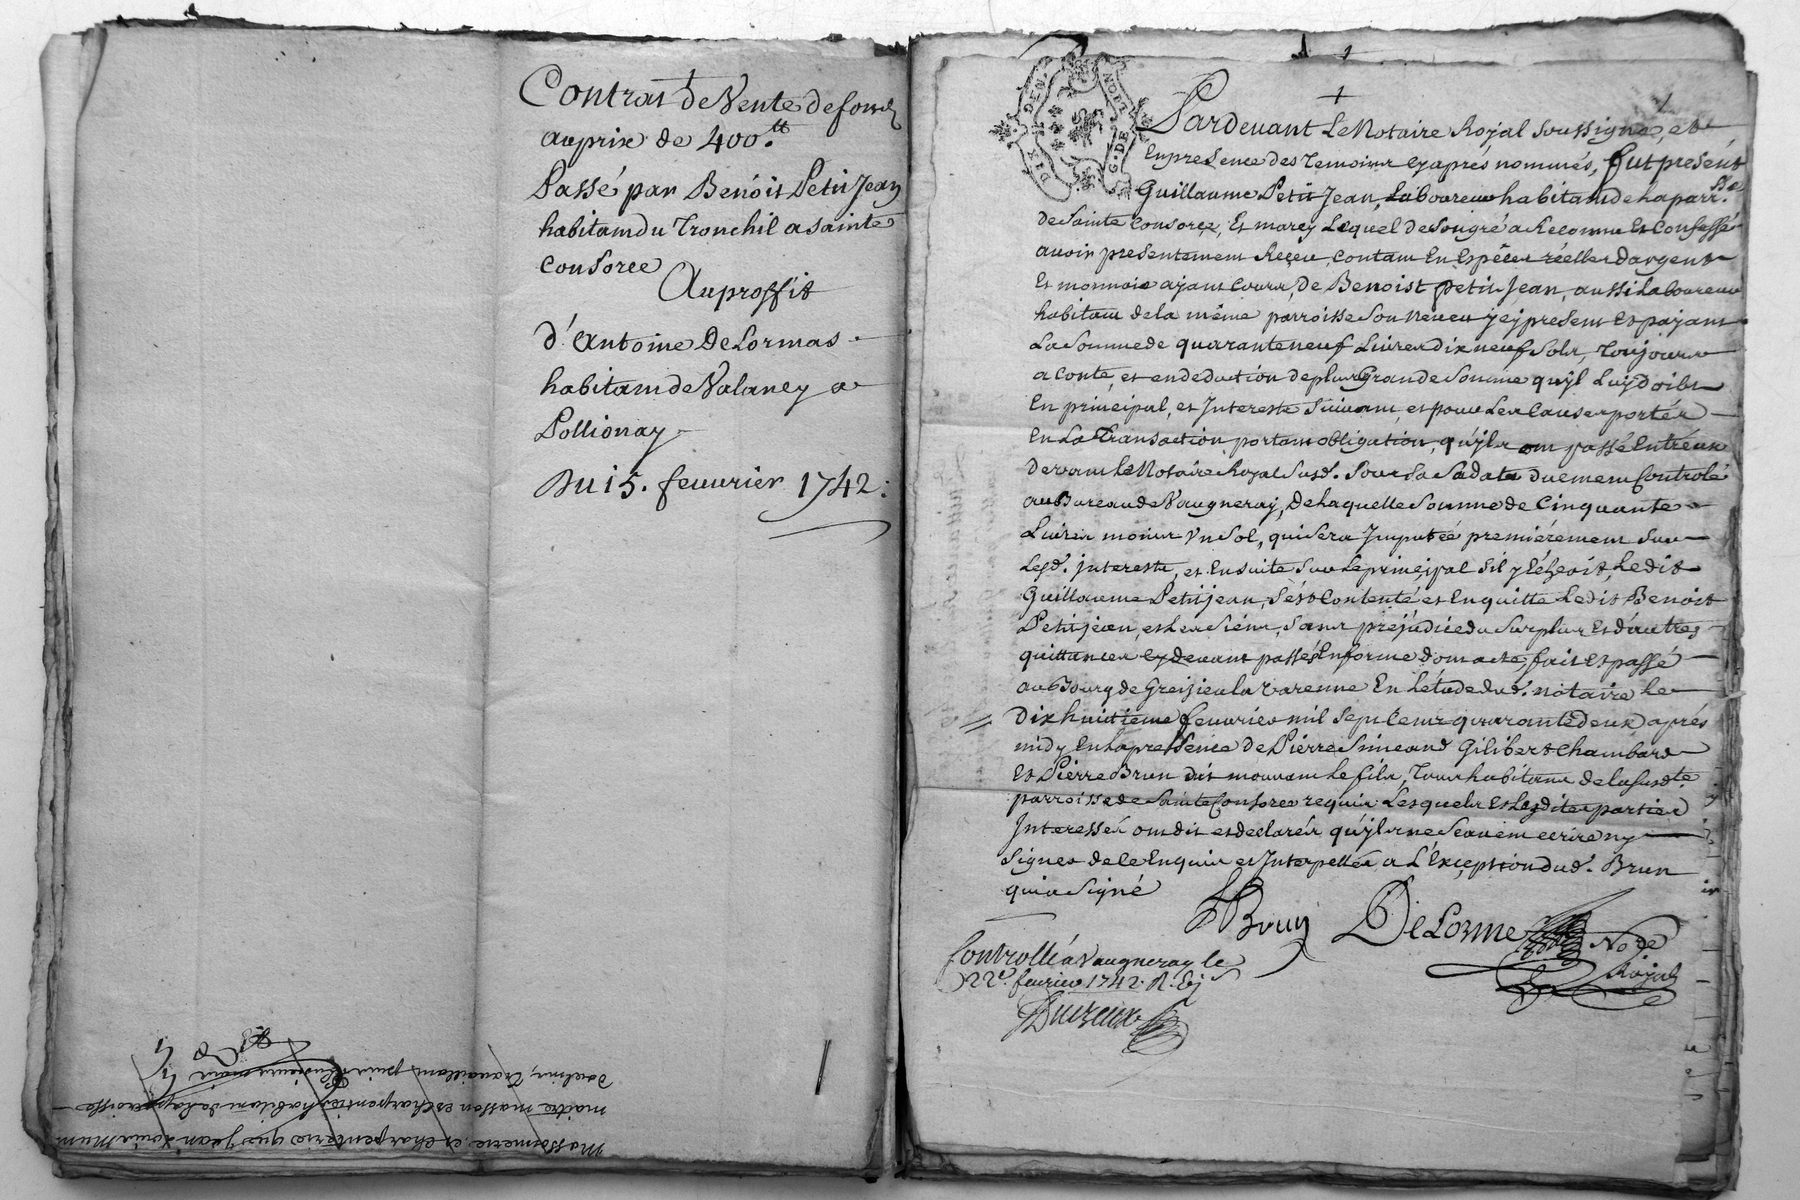 Contrat de Vente de fond
au prix de 400.tt
Passé par Benoit Petit Jean
habitant du Tronchil a sainte
consorce
Au proffit
d'Antoine DeLormas
habitant de Valaney a
Pollionay
Du 15. feuurier 1742.
massonnerie et charpenterie que Jean Louis
maitre masson et charpentier habitant de la parroisse
travaillant
G. DE LYON
DIX DEN.
Pardeuant Le Notaire Royal soussigné, et
En presence des Temoins cy aprés nommés, fut presént
Guillaume Petit Jean, Laboureur habitant de la parr.sse
de Sainte Consorçe, Et marcy Lequel de son gré a Reconnu Et Confessé
auoir presentement Reçeu, contant En Espéces réelles d'argent
Et monnoie ajant cours, de Benoist petit Jean, aussi Laboureur
habitant de la méme parroisse son neveu jcy present Et pajant
La somme de quarante neuf Liures dix neuf sols, Toujours
a conte, et en deduction de plus Grande somme qu'jl Luy doibt
En principal, et Interests suivant, et pour Les causes portés
En La Transaction portant obligation, qu'jls ont passé Entréux
devant le Notaire Royal susd. sous sa date duement Controlé
au Bureau de Vaugneray, De laquelle Somme de Cinquante
Liures moins Vn sol, qui sera Jmputéé premiérement sur
Lesd. jnterests, et Ensuite sur Le prinçipal sil y Echeoit, Ledit
Guillaume Petitjean, s'ést Contenté et En quitte Ledit Benoit
Petitjean, et Les siéns, sans prejudice du surplus Et d'autres
quittances cy deuant passés En forme, dont acte, fait Et passé
au Bourg de Greisieu la Varenne En L'étude dud. notaire le
Dix huitieme feuurier mil sept cent quarante deux aprés
midy En La presence de Pierre Simeand Gilibert Chambard
Et Pierre Brun dit mouvant le fils, Tous habitans de la susd.te
parroisse de Sainte Consorce requis Lesquels Et Lesdites parties
Interessés ont dit et declarér qu'jls ne scavent ecrire ny
signer de ce Enquis et Interpellés a L'Exception dud. Brun
qui a signé
PBrun DeLorme No.re
Royal
Controllé a Vaugneray le
22e. feurier 1742. R.